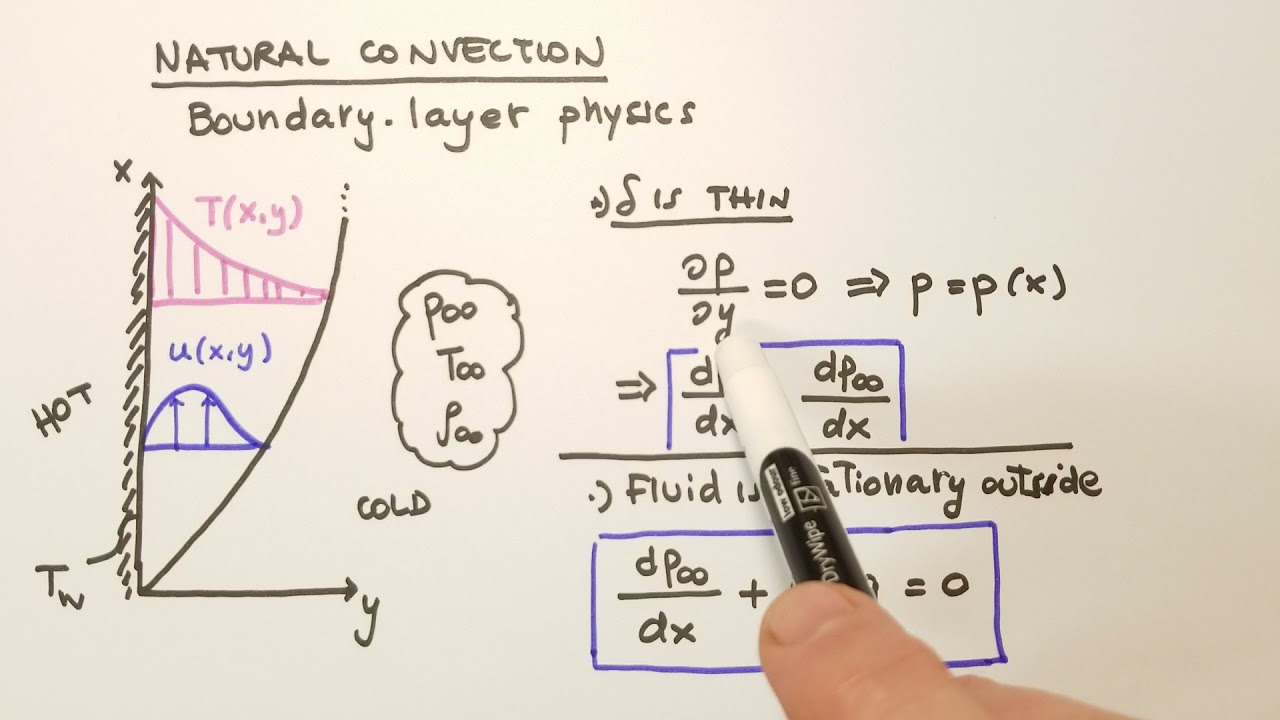 NATURAL CONVECTION
Boundary-layer physics
x
T(x,y)
u(x,y)
HOT
T_w
y
p∞
T∞
ρ∞
COLD
•) δ IS THIN
∂p/∂y = 0 ⇒ p = p(x)
⇒ dp∞/dx
•) Fluid is outside
dp∞/dx + = 0
low odour
finn
DryWipe